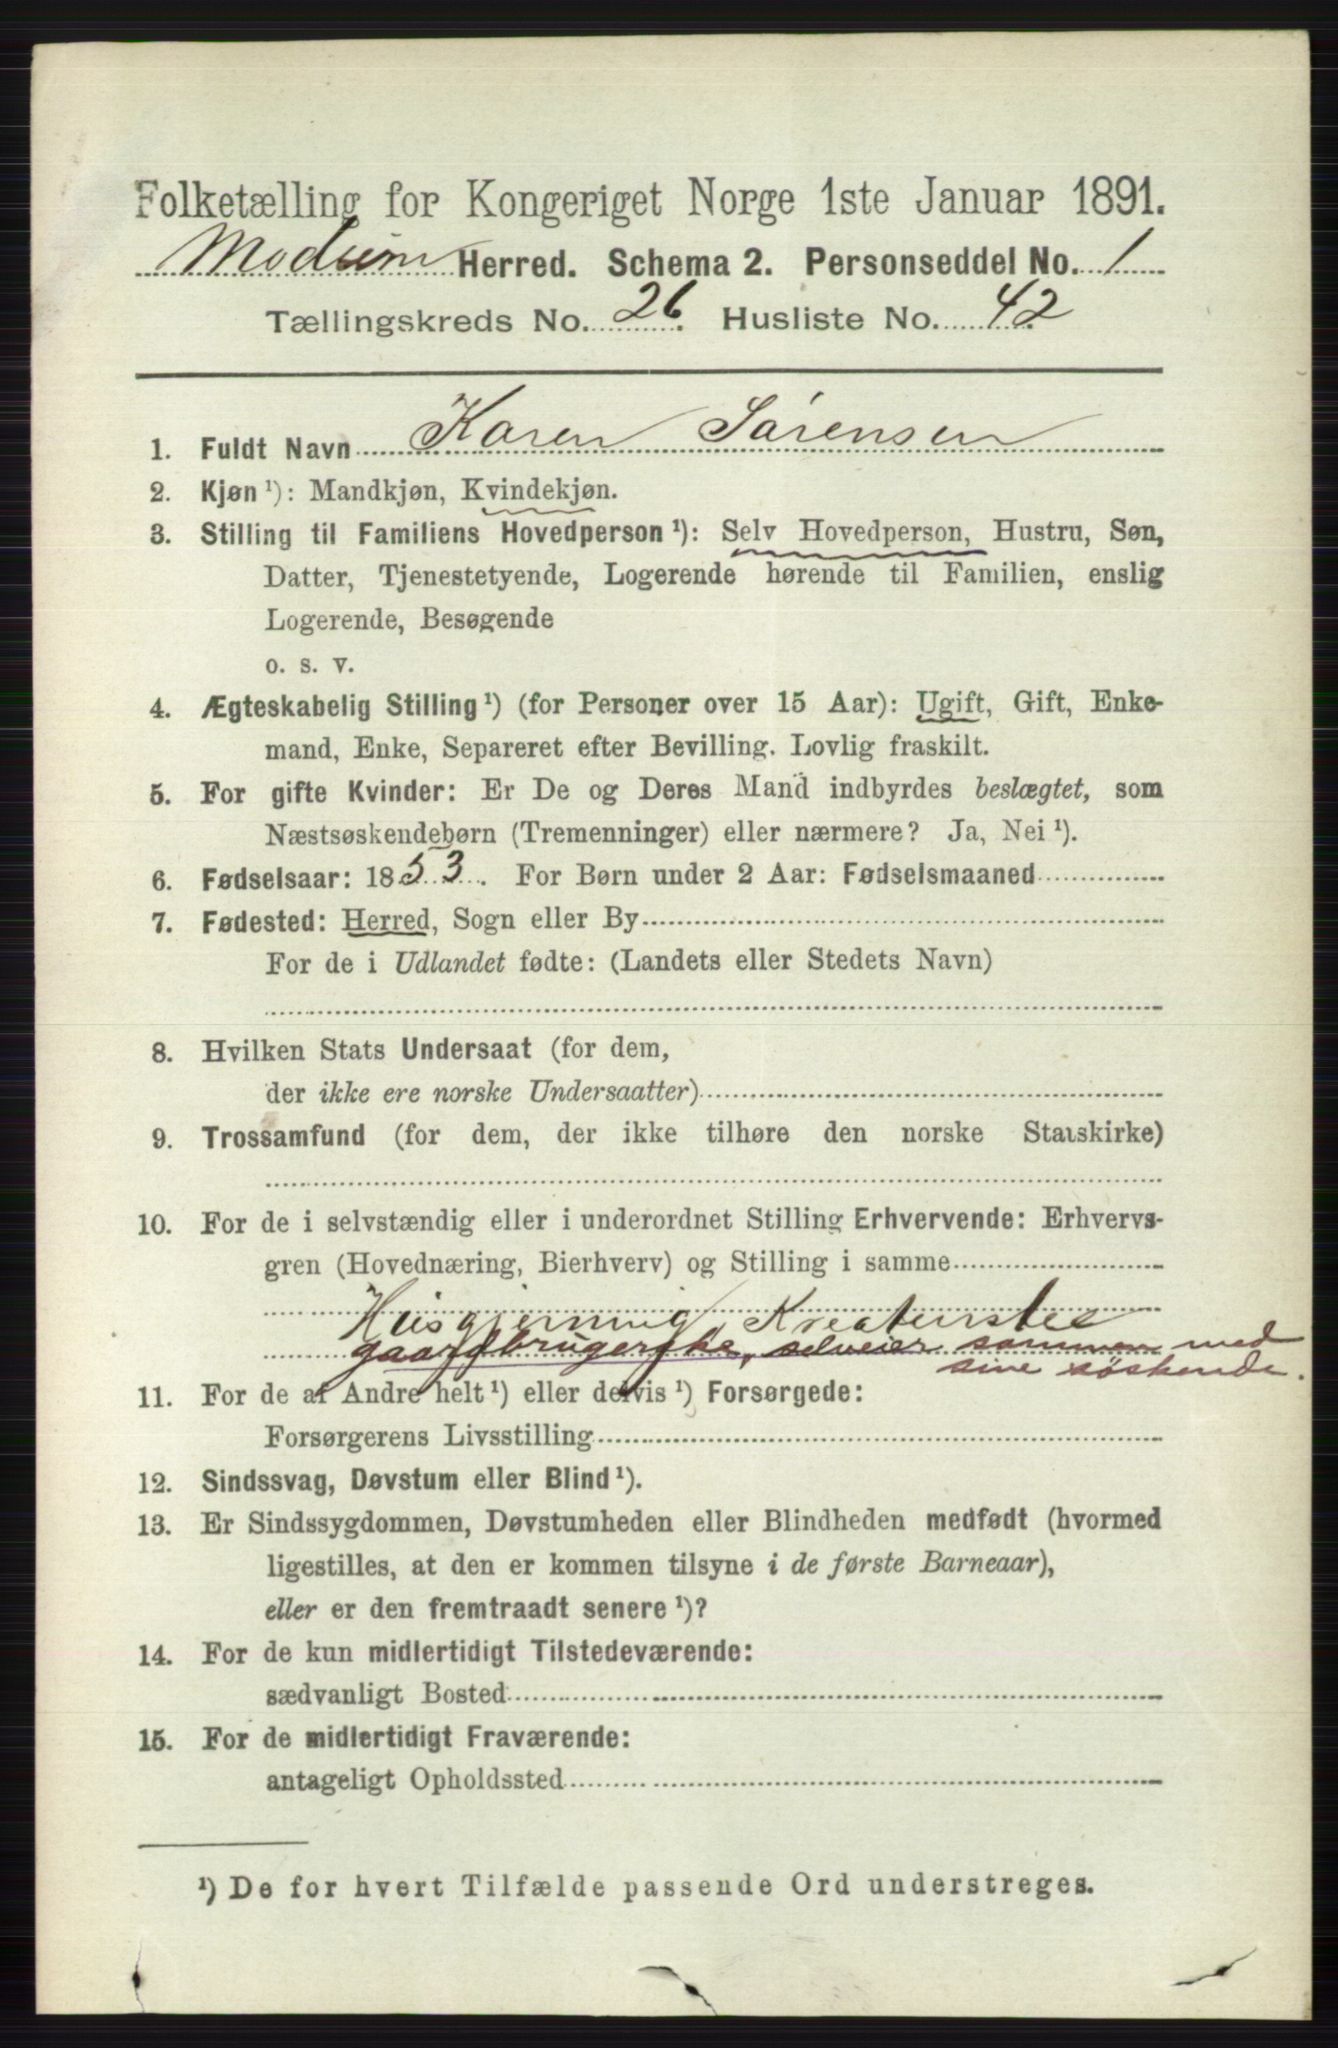 Folketælling for Kongeriget Norge 1ste Januar 1891.
Modum Herred. Schema 2. Personseddel No. 1
Tællingskreds No. 26. Husliste No. 42
1. Fuldt Navn Karen Sørensen
2. Kjøn ¹): Mandkjøn, Kvindekjøn.
3. Stilling til Familiens Hovedperson ¹): Selv Hovedperson, Hustru, Søn,
Datter, Tjenestetyende, Logerende hørende til Familien, enslig
Logerende, Besøgende
o. s. v.
4. Ægteskabelig Stilling ¹) (for Personer over 15 Aar): Ugift, Gift, Enke-
mand, Enke, Separeret efter Bevilling. Lovlig fraskilt.
5. For gifte Kvinder: Er De og Deres Mand indbyrdes beslægtet, som
Næstsøskendebørn (Tremenninger) eller nærmere? Ja, Nei ¹).
6. Fødselsaar: 1853. For Børn under 2 Aar: Fødselsmaaned
7. Fødested: Herred, Sogn eller By
For de i Udlandet fødte: (Landets eller Stedets Navn)
8. Hvilken Stats Undersaat (for dem,
der ikke ere norske Undersaatter)
9. Trossamfund (for dem, der ikke tilhøre den norske Statskirke)
10. For de i selvstændig eller i underordnet Stilling Erhvervende: Erhvervs-
gren (Hovednæring, Bierhverv) og Stilling i samme
Husgjerning, Kreaturstel
gaardbrugerske, selveier sammen med
sine søskende.
11. For de af Andre helt ¹) eller delvis ¹) Forsørgede:
Forsørgerens Livsstilling
12. Sindssvag, Døvstum eller Blind ¹).
13. Er Sindssygdommen, Døvstumheden eller Blindheden medfødt (hvormed
ligestilles, at den er kommen tilsyne i de første Barneaar),
eller er den fremtraadt senere ¹)?
14. For de kun midlertidigt Tilstedeværende:
sædvanligt Bosted
15. For de midlertidigt Fraværende:
antageligt Opholdssted
¹) De for hvert Tilfælde passende Ord understreges.